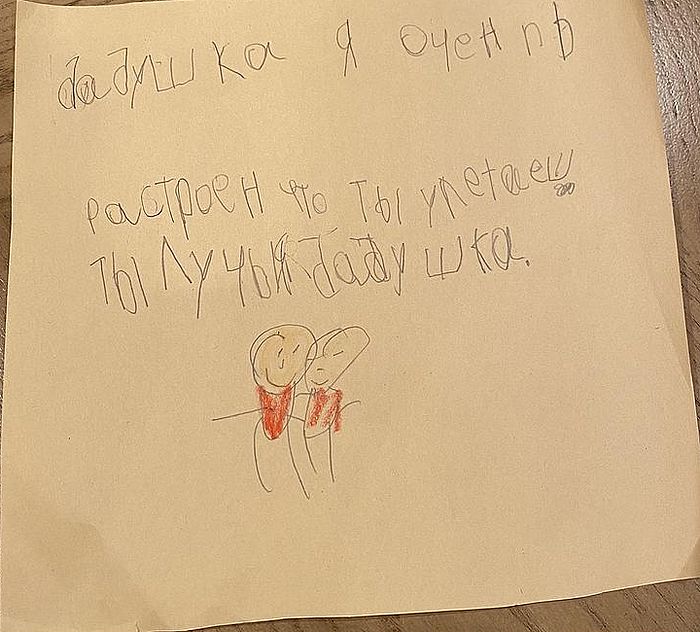 дадушка я очен пь
растроен что ты улетаеш
ты лучый дадушка.